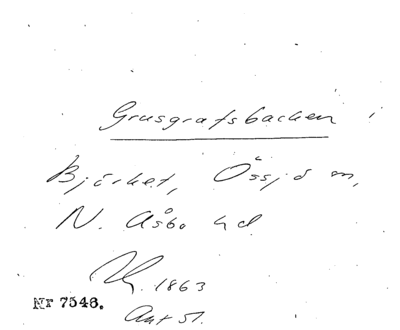 Grusgrafsbacken i
Björket, Össjö sn,
N. Åsbo hd.
1863
Nr 7546.
Ant 51.